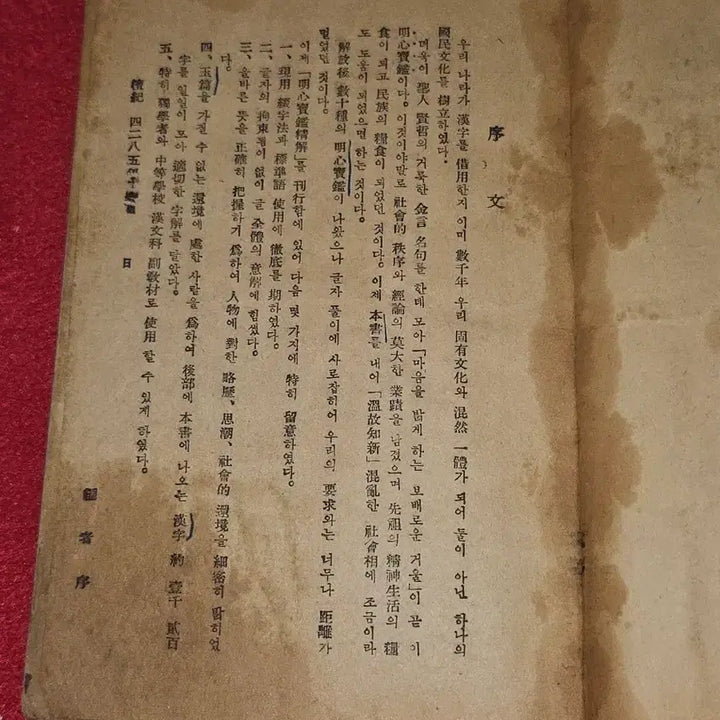 序文
우리 나라가 漢字를 借用한지 이미 數千年 우리 固有文化와 混然 一體가 되어 둘이 아닌 하나의
國民文化를 樹立하였다.
더욱이 聖人 賢哲의 거룩한 金言 名句를 한데 모아 「마음을 밝게 하는 보배로운 거울」이 곧 이
明心寶鑑이다. 이것이야말로 社會的 秩序와 經論의 莫大한 業蹟을 남겼으며 先祖의 精神生活의 糧
食이 되고 民族의 糧食이 되였던 것이다. 이제 本書를 내어 「溫故知新」 混亂한 社會相에 조금이라
도 도움이 되였으면 하는 것이다.
解放後 數十種의 明心寶鑑이 나왔으나 글자 풀이에 사로잡히어 우리의 要求와는 너무나 距離가
멀었던 것이다.
이제 「明心寶鑑精解」를 刊行함에 있어 다음 몇 가지에 特히 留意하였다.
一、現用 綴字法과 標準語 使用에 徹底를 期하였다.
二、글자의 拘束됨이 없이 글 全體의 意解에 힘썼다.
三、올바른 뜻을 正確히 把握하기 爲하여 人物에 對한 略歷、思潮、社會的 環境을 細密히 밝히었
다.
四、玉篇을 가질 수 없는 環境에 處한 사람을 爲하여 後部에 本書에 나오는 漢字 約 壹千 貳百
字를 일일이 모아 適切한 字解를 달았다.
五、特히 獨學者와 中等學校 漢文科 副敎材로 使用 할 수 있게 하였다.
檀紀 四二八五年 日
編者 序